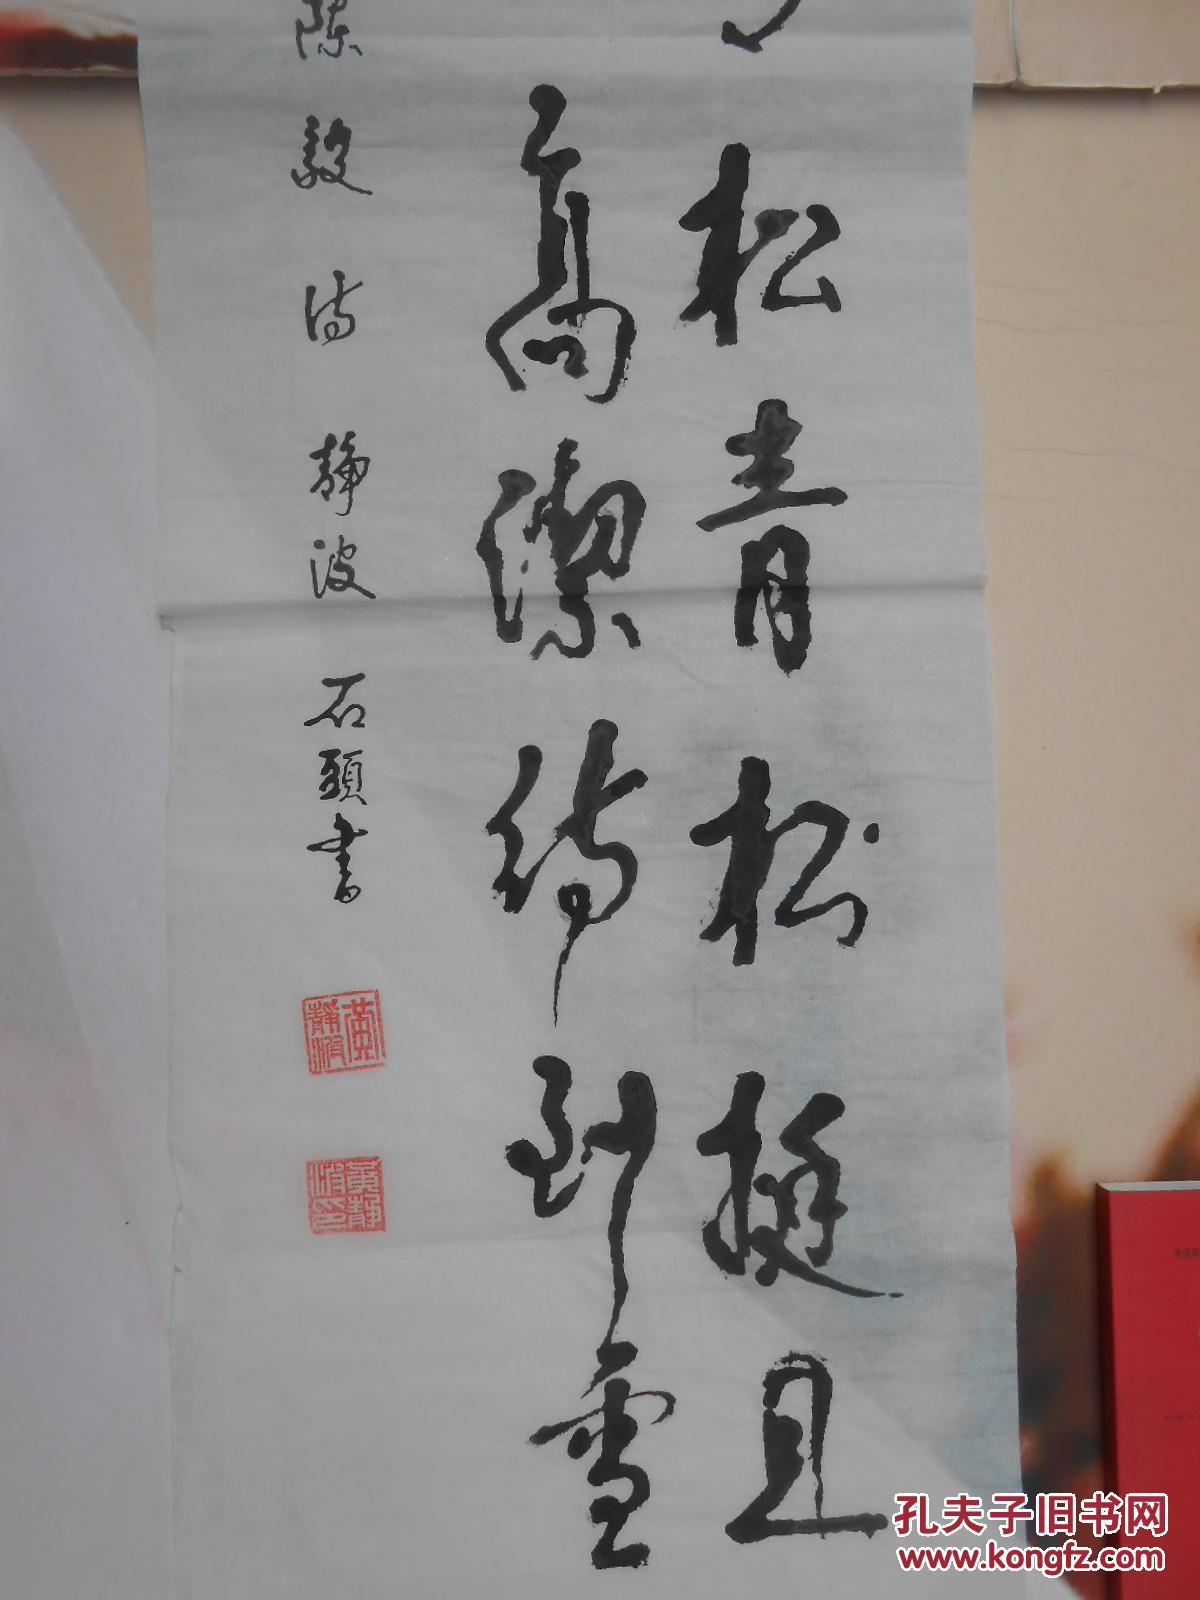 松青松挺且
高潔待到雪
陈毅诗 静波 石頭書
黄靜波
黄静波印
孔夫子旧书网
www.kongfz.com